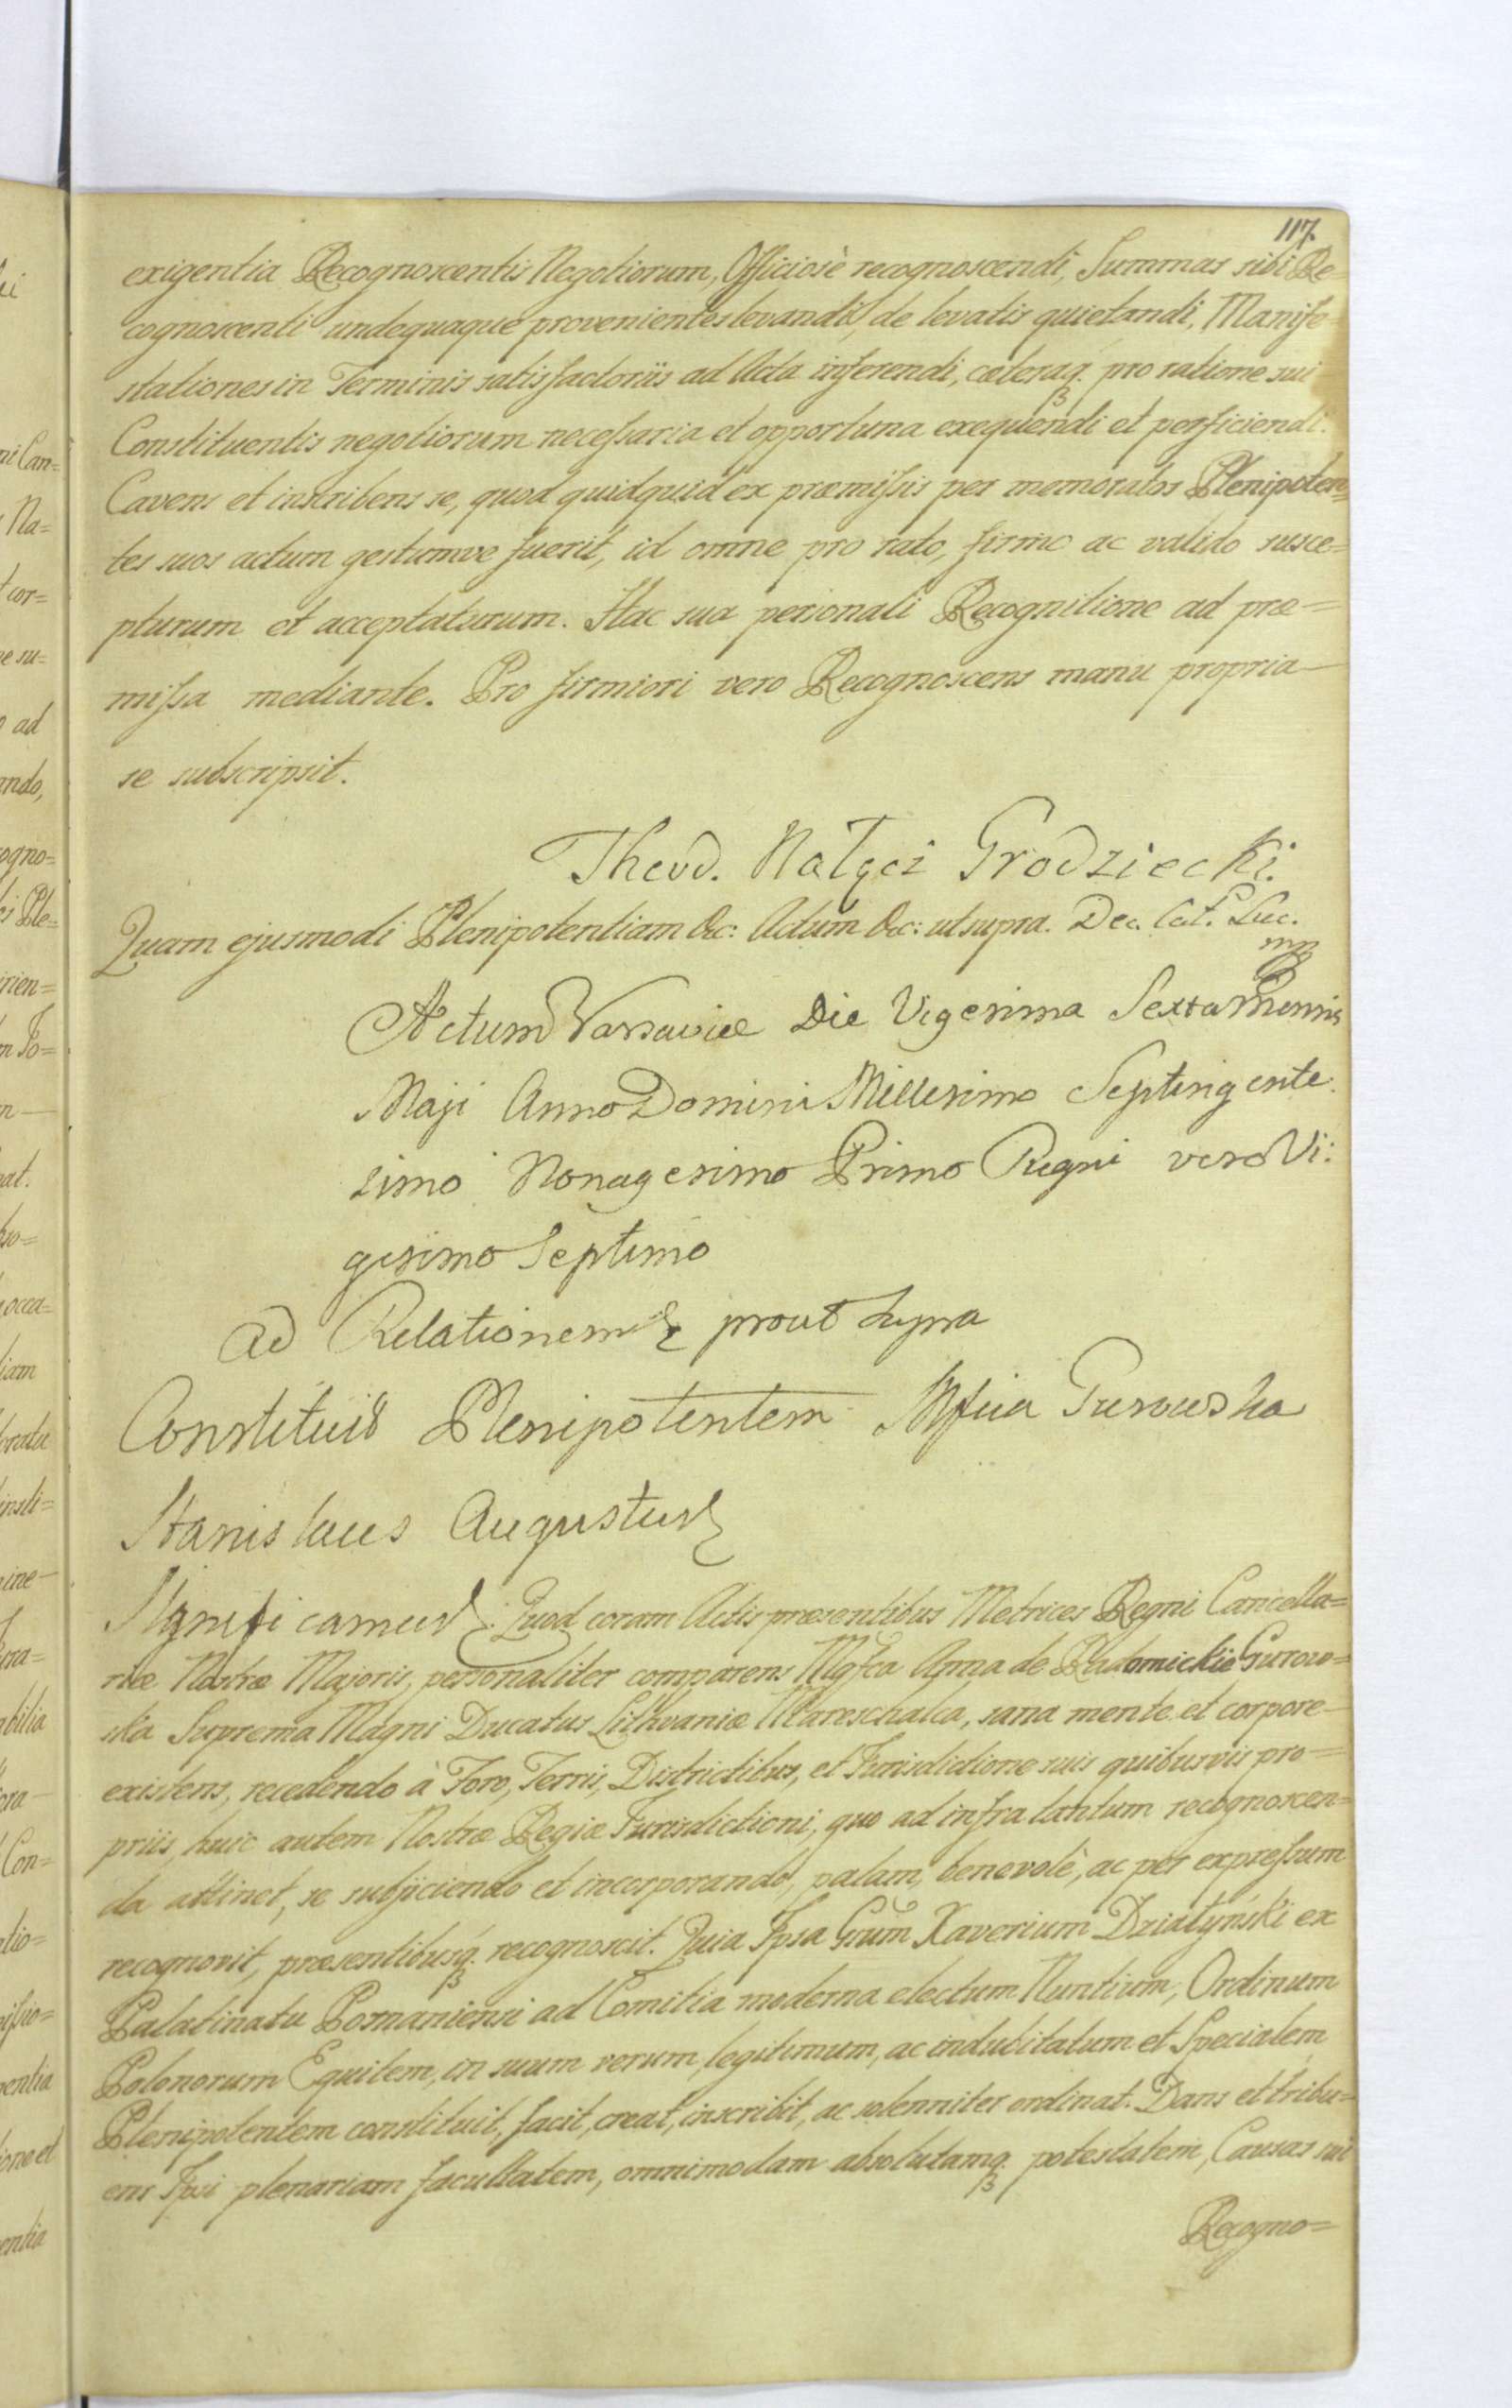 117.
exigentia Recognoscentis Negotiorum, Officiosè recognoscendi, Summas sibi Re=
cognoscenti undequaque provenientes levandi, de levatis quietandi, Manife=
stationes in Terminis satisfactoriis ad Acta inferendi, cæteraq. pro ratione sui
Constituentis negotiorum necessaria et opportuna exequendi et perficiendi.
Cavens et inscribens se, quod quidquid ex præmissis per memoratos Plenipoten=
tes suos actum gestumve fuerit, id omne pro rato, firmo ac valido susce=
pturum et acceptaturum. Hac sua personali Recognitione ad præ=
missa mediante. Pro firmiori vero Recognoscens manu propria
se subscripsit.
Theod. Nałęcz Grodziecki.
Quam ejusmodi Plenipotentiam &c: Actum &c: ut supra. Dec. Cat. Luc.
mp
Actum Varsaviæ Die Vigesima Sexta Mensis
Maji Anno Domini Millesimo Septingente.
simo Nonagesimo Primo Regni vero Vi:
gesimo Septimo
Ad Relationem & prout Supra
Constituit Plenipotentem Mfica Gurowska
Stanislaus Augustus &
Significamus &. Quod coram Actis præsentibus Metrices Regni Cancella=
riæ Nostræ Majoris, personaliter comparens Mgfca Anna de Radomickie Gurow=
ska Suprema Magni Ducatus Lithvaniæ Mareschalca, sana mente et corpore
existens, recedendo à Foro, Terris, Districtibus, et Jurisdictione suis quibusvis pro=
priis, huic autem Nostræ Regiæ Jurisdictioni, quo ad infra tantum recognoscen=
da attinet, se subjiciendo et incorporando, palam, benevolè, ac per expressum
recognovit, præsentibusq. recognoscit. Quia Ipsa Grum Xaverium Działyński ex
Palatinatu Posnaniensi ad Comitia moderna electum Nuntium, Ordinum
Polonorum Equitem, in suum verum, legitimum, ac indubitatum et Specialem
Plenipotentem constituit, facit, creat, inscribit, ac solenniter ordinat. Dans et tribu=
ens Ipsi plenariam facultatem, omnimodam absolutamq. potestatem, Causas sui
Recogno=